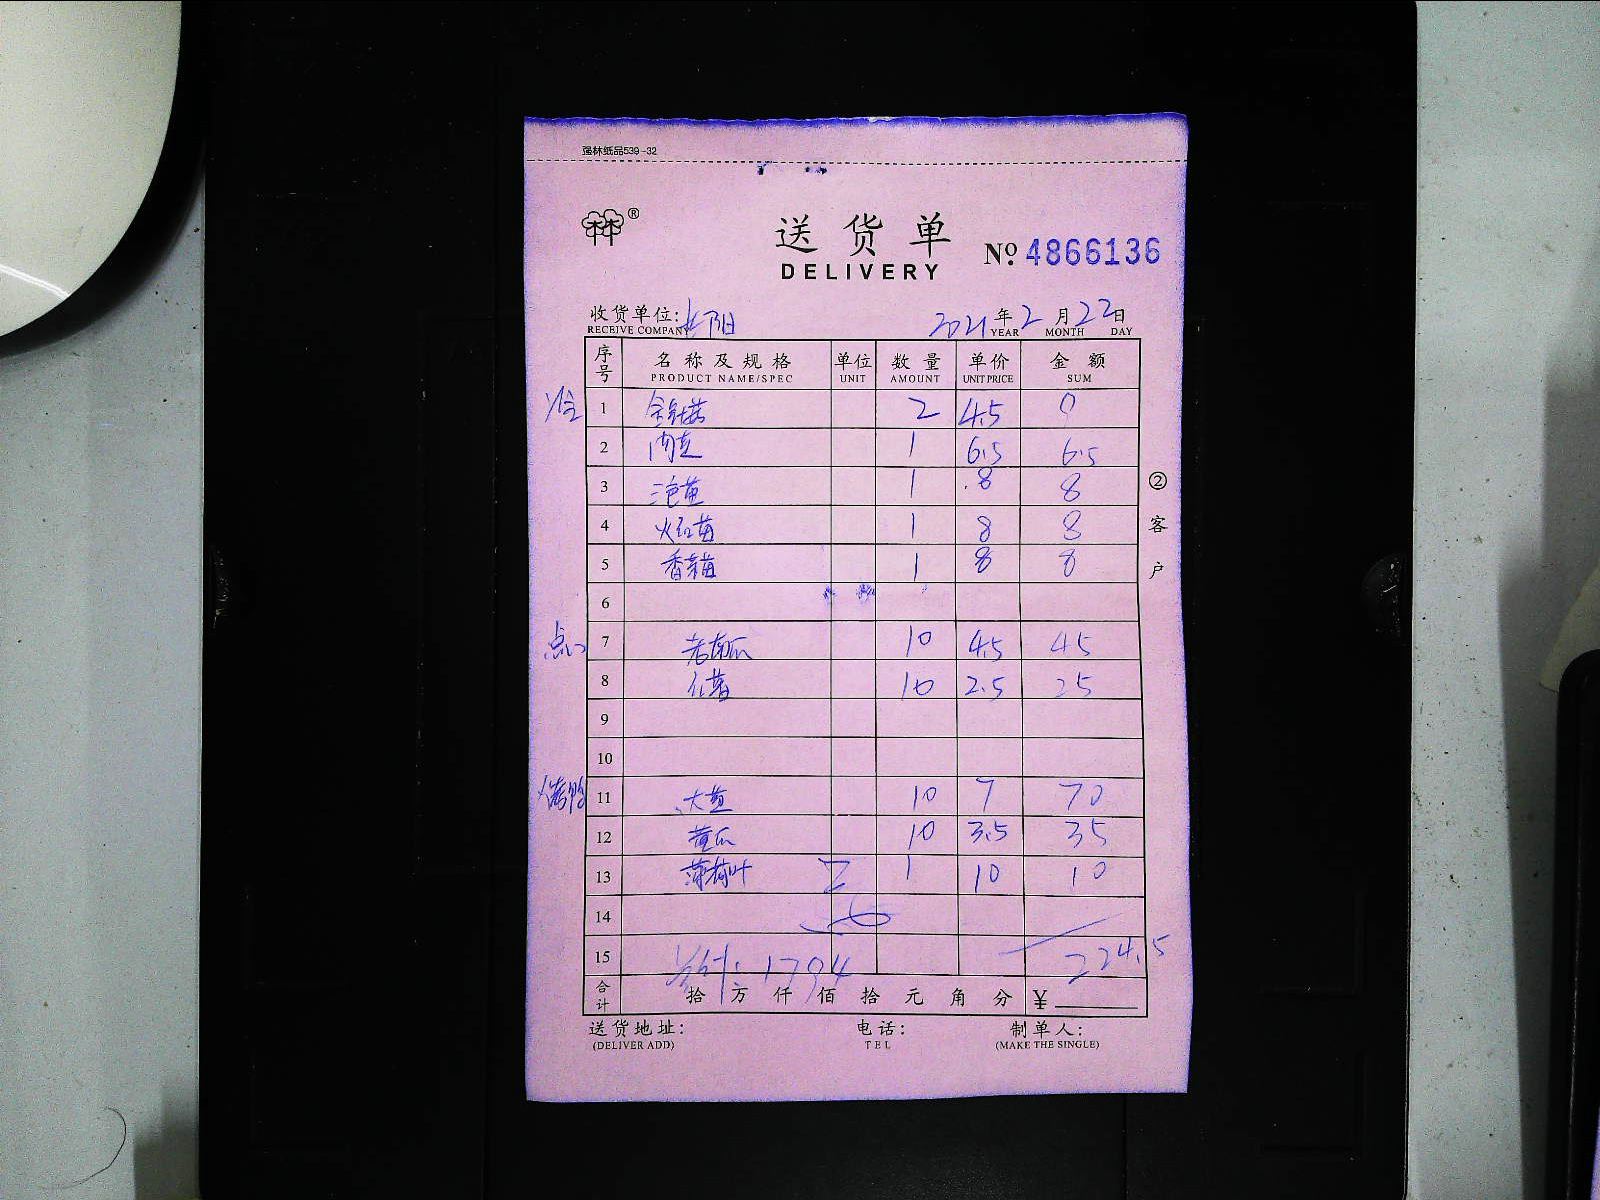 强林纸品539-32
林林®
送货单
DELIVERY
№ 4866136
收货单位: 长阳 2021年2月22日
RECEIVE COMPANY YEAR MONTH DAY
序号 名称及规格 单位 数量 单价 金额
PRODUCT NAME/SPEC UNIT AMOUNT UNIT PRICE SUM
1 金针菇 2 4.5 9
2 内豆 1 6.5 6.5
3 1 8 8
4 火红苗 1 8 8
5 香菜苗 1 8 8
6
点心 7 老南瓜 10 4.5 45
8 红薯 10 2.5 25
9
10
烤鸭 11 大葱 10 7 70
12 黄瓜 10 3.5 35
13 薄荷叶 1 10 10
14
15 共计: 1794 224.5
合计 拾 万 仟 佰 拾 元 角 分 ¥
送货地址: 电话: 制单人:
(DELIVER ADD) TEL (MAKE THE SINGLE)
②客户